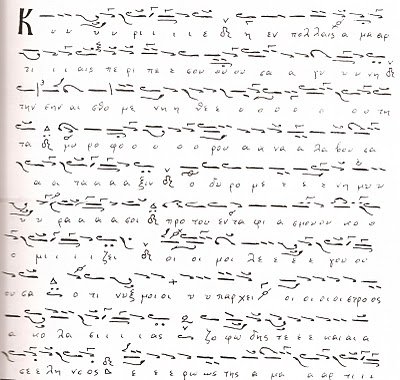 Κ υ υ υ ρι ι ι ι ε η εν πολλαις α μα αρ
τι ι ι αις πε ρι πε ε σου ου ου σα α γυ υ υ νη
την σην αι σθο με νη η θε ε ο ο ο ο ο ου τη
τα μυ ρο φο ο ο ο ο ρου α α να α λα βου σα
α αι τα α α α ξιν ο δυ ρο με ε ε ε νη μυ υ
υ υ ρα α α α σοι προ του εν τα φι α σμου ου κο ο
ο μι ι ι ι ζει οι οι μοι λε ε ε ε γου ου
ου σα ο τι νυξ μοι οι υ υ παρ χει οι οι οι οι στρο ος
α κο λα σι ι ι ας ζο φω δης τε ε ε και αι α
σε ε λη νε ος ε ε ε ρω ως της α μα α αρ τι ι ι